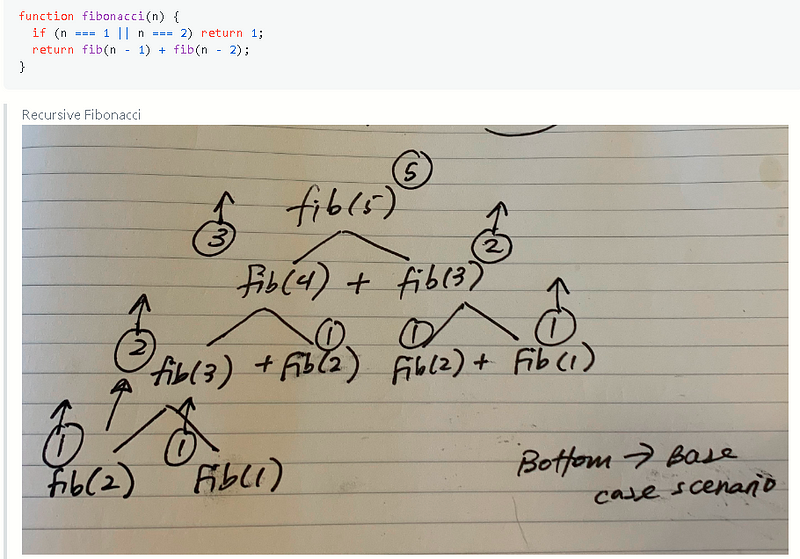 function fibonacci(n) {
  if (n === 1 || n === 2) return 1;
  return fib(n - 1) + fib(n - 2);
}
Recursive Fibonacci
5
fib(5)
3 2
fib(4) + fib(3)
2 1 1 1
fib(3) + fib(2) fib(2) + fib(1)
1 1
fib(2) fib(1)
Bottom → Base
case scenario